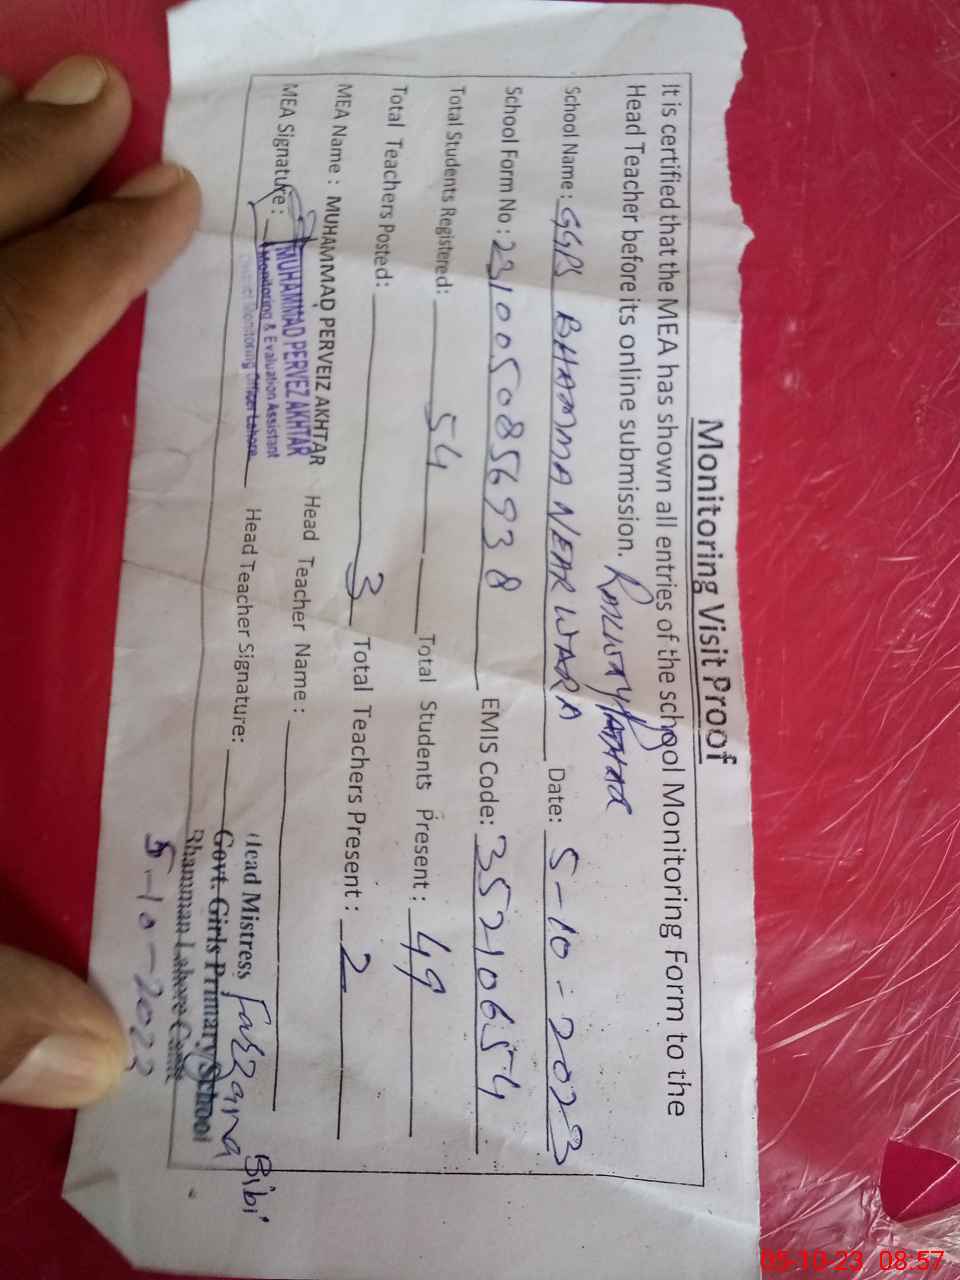 Monitoring Visit Proof
It is certified that the MEA has shown all entries of the school Monitoring Form to the
Head Teacher before its online submission. RAILWAY PHATAK
School Name: GGPS BHAMMA NEAR WARA Date: 5-10-2023
School Form No: 231005085693 8 EMIS Code: 35210654
Total Students Registered: 54 Total Students Present: 49
Total Teachers Posted: 3 Total Teachers Present: 2
MEA Name: MUHAMMAD PERVEIZ AKHTAR Head Teacher Name:
MEA Signature: Head Teacher Signature:
MUHAMMAD PERVEZ AKHTAR
Monitoring & Evaluation Assistant
District Monitoring Officer Lahore
Head Mistress Farzana Bibi
Govt. Girls Primary School
Bhamman Lahore Cantt
5-10-2023
05-10-23 08:57